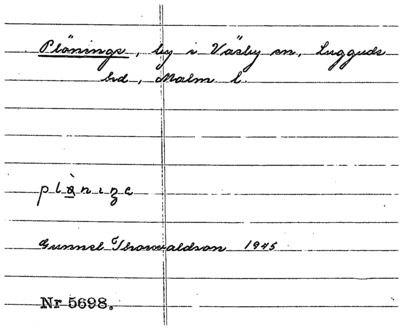 Pläninge, by i Väsby sn, Luggude
hd, Malm l.
plànıze
Gunnel Thorwaldson 1945
Nr 5698.